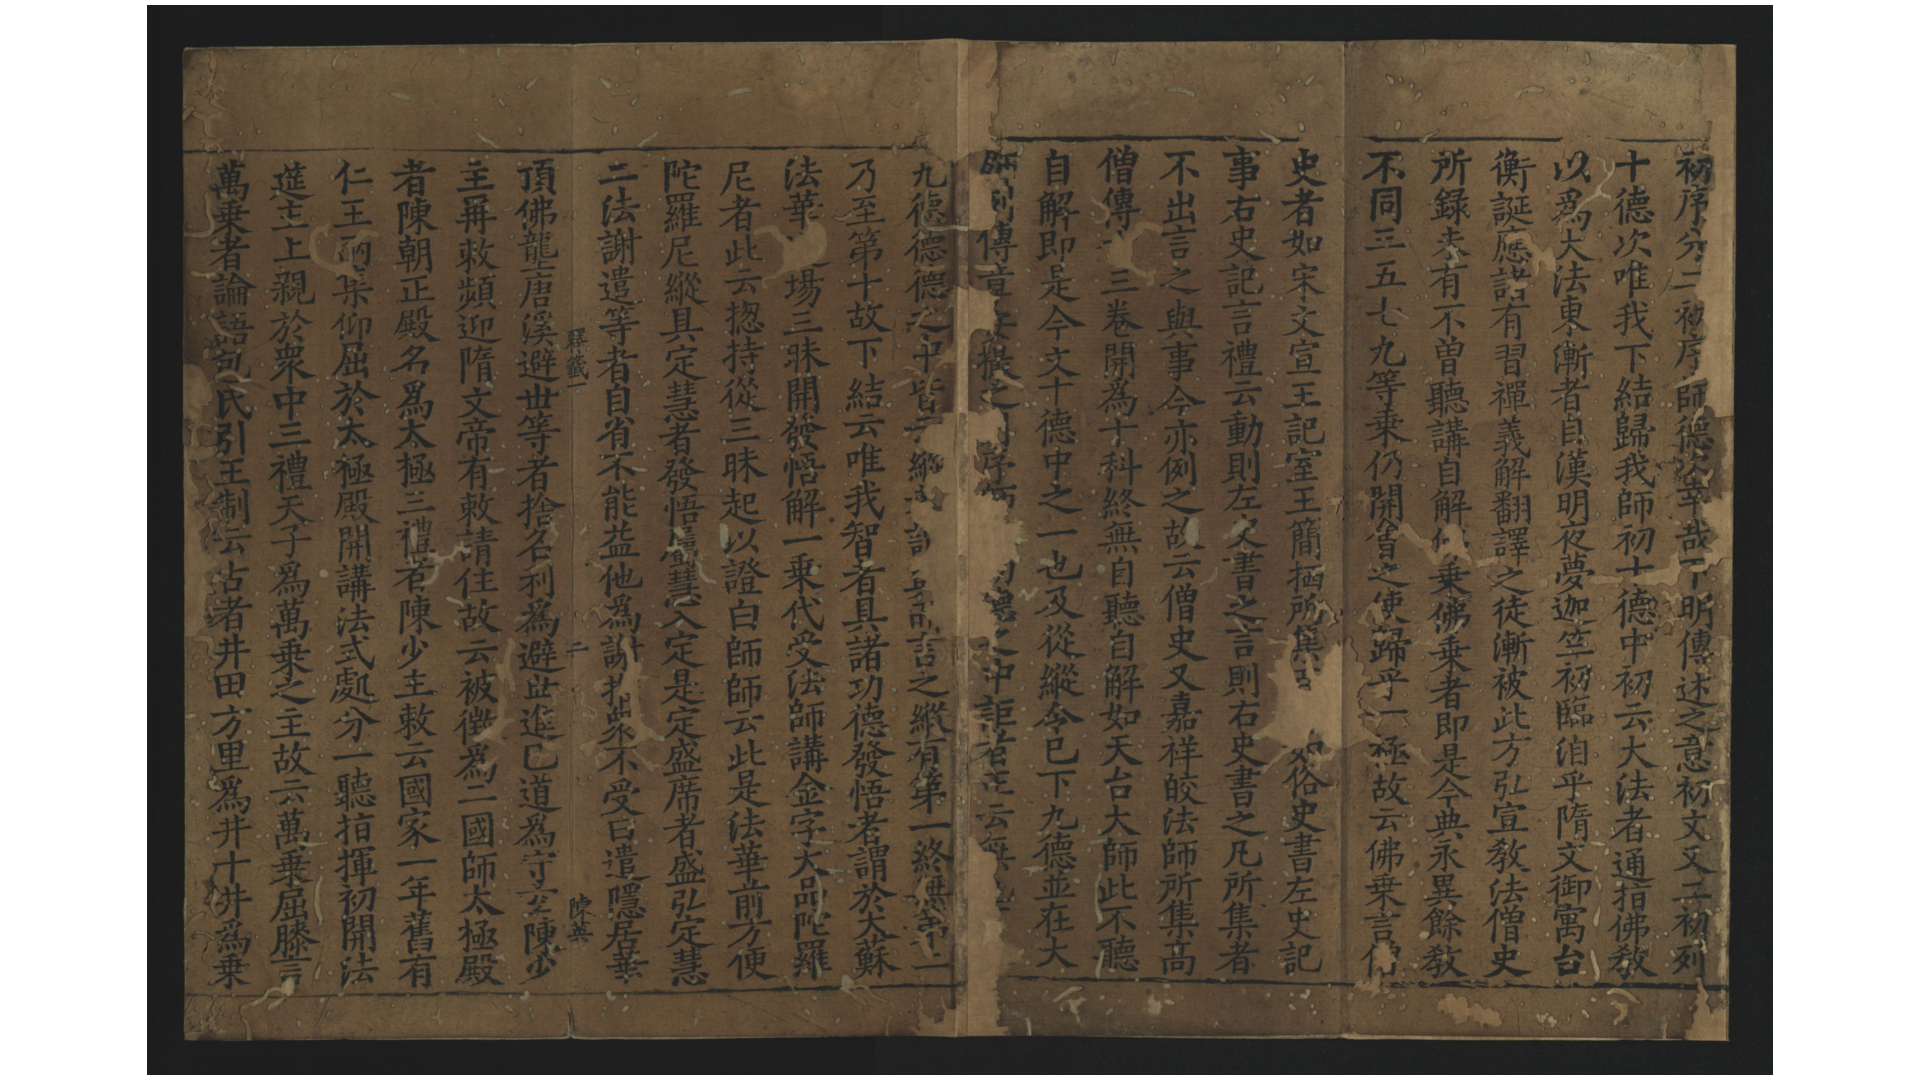 初序分二初序師德途幸哉下明傳述之意初文又二初列
十德次唯我下結歸我師初十德中初云大法者通指佛教
以為大法東漸者自漢明夜夢迦竺初臨洎乎隋文御寓台
衡誕應諸有習禪義解翻譯之徒漸被此方弘宣教法僧史
所錄未有不曾聽講自解佛乗佛乗者即是今典永異餘教
不同三五七九等乗仍開會之使歸乎一極故云佛乗言僧
史者如宋文宣王記室王簡栖所集 如俗史書左史記
事右史記言禮云動則左史書之言則右史書之凡所集者
不出言之與事今亦例之故云僧史又嘉祥皎法師所集高
僧傳十三卷開為十科終無自聽自解如天台大師此不聽
自解即是今文十德中之一也及從縱令已下九德並在大
師 傳章安撰之 德之中詎者正云無
九德德德之中皆云縱 言之縱有第一終無第二
乃至第十故下結云唯我智者具諸功德發悟者謂於大蘇
法華 場三昧開發悟解一乗代受法師講金字大品陀羅
尼者此云揔持從三昧起以證白師師云此是法華前方便
陀羅尼縱具定慧者發悟 慧入定是定盛席者盛弘定慧
二法謝遣等者自省不能益他為謝 衆不受曰遣隱居華
釋籤一 二 陳英
頂佛龍唐溪避世等者捨名利為避世進已道為守 陳少
主再敕頻迎隋文帝有敕請住故云被徵為二國師太極殿
者陳朝正殿名為太極三禮者陳少主敕云國家一年舊有
仁王兩集仰屈於太極殿開講法式處分一聽指揮初開法
筵主上親於衆中三禮天子為萬乗之主故云萬乗屈膝言
萬乗者論語包氏引王制云古者井田方里為井十井為乗